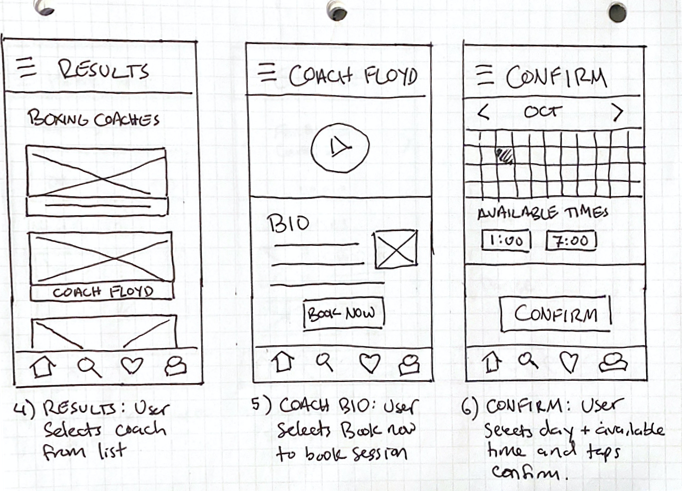 RESULTS
BOXING COACHES
COACH FLOYD
4) RESULTS: User
Selects coach
from list
COACH FLOYD
BIO
BOOK NOW
5) COACH BIO: User
Selects Book now
to book session
CONFIRM
< OCT >
AVAILABLE TIMES
1:00 7:00
CONFIRM
6) CONFIRM: User
selects day + available
time and taps
confirm.